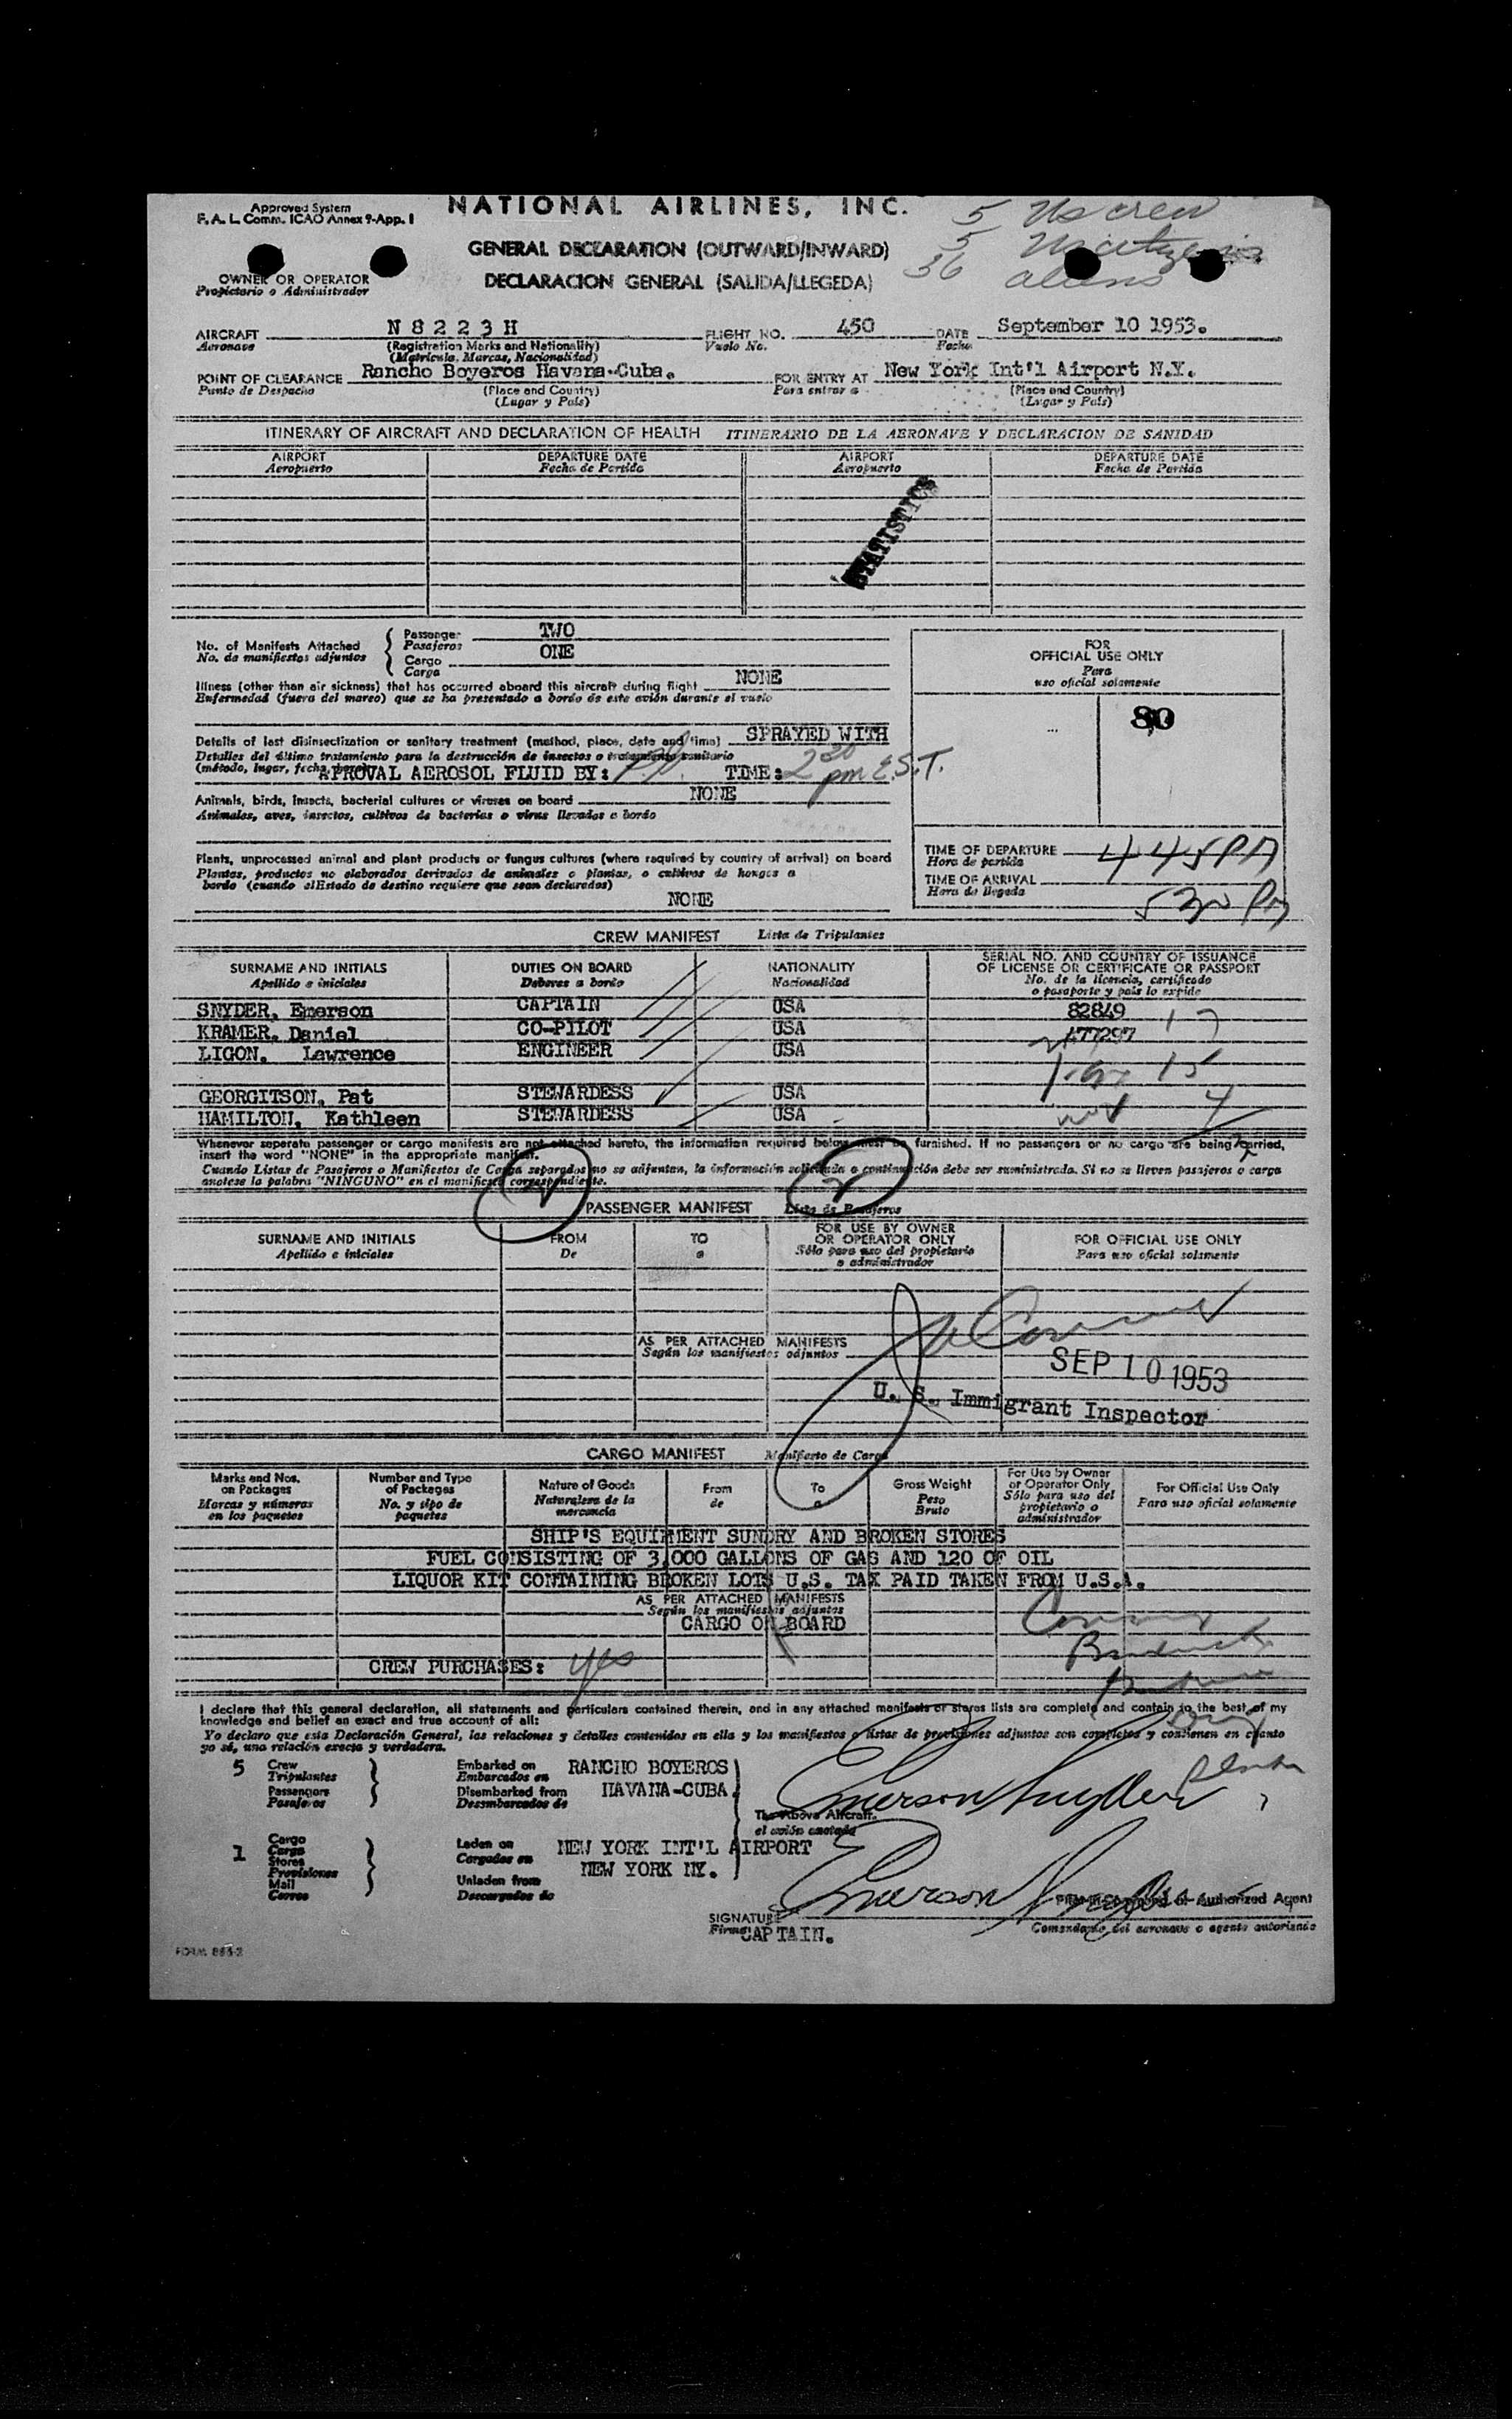 Approved System
F. A. L. Comm. ICAO Annex 9-App. I
NATIONAL AIRLINES, INC.
5 Us crew
5 Us citizens
36 aliens
GENERAL DECLARATION (OUTWARD/INWARD)
DECLARACION GENERAL (SALIDA/LLEGEDA)
OWNER OR OPERATOR
Propietario o Administrador
AIRCRAFT N 8 2 2 3 H FLIGHT NO. 450 DATE September 10 1953.
Aeronave (Registration Marks and Nationality) Vuelo No. Fecha
(Matricula, Marcas, Nacionalidad)
POINT OF CLEARANCE Rancho Boyeros Havana-Cuba. FOR ENTRY AT New York Int'l Airport N.Y.
Punto de Despacho (Place and Country) Para entrar a (Place and Country)
(Lugar y País) (Lugar y País)
ITINERARY OF AIRCRAFT AND DECLARATION OF HEALTH ITINERARIO DE LA AERONAVE Y DECLARACION DE SANIDAD
AIRPORT DEPARTURE DATE AIRPORT DEPARTURE DATE
Aeropuerto Fecha de Partida Aeropuerto Fecha de Partida
STATISTICS
No. of Manifests Attached Passenger TWO
No. de manifiestos adjuntos Pasajeros
Cargo ONE
Carga
Illness (other than air sickness) that has occurred aboard this aircraft during flight NONE
Enfermedad (fuera del mareo) que se ha presentado a bordo de este avión durante el vuelo
Details of last disinsectization or sanitary treatment (method, place, date and time) SPRAYED WITH
Detalles del último tratamiento para la destrucción de insectos o tratamiento sanitario
(método, lugar, fecha, hora)
APROVAL AEROSOL FLUID BY: TIME: 2 30 pm E.S.T.
Animals, birds, insects, bacterial cultures or viruses on board NONE
Animales, aves, insectos, cultivos de bacterias o virus llevados a bordo
Plants, unprocessed animal and plant products or fungus cultures (where required by country of arrival) on board
Plantas, productos no elaborados derivados de animales o plantas, o cultivos de hongos a
bordo (cuando elEstado de destino requiere que sean declarados)
NONE
FOR
OFFICIAL USE ONLY
Para
uso oficial solamente
80
TIME OF DEPARTURE 445 PM
Hora de partida
TIME OF ARRIVAL 530 PM
Hora de llegada
CREW MANIFEST Lista de Tripulantes
SURNAME AND INITIALS DUTIES ON BOARD NATIONALITY SERIAL NO. AND COUNTRY OF ISSUANCE
OF LICENSE OR CERTIFICATE OR PASSPORT
Apellido e iniciales Deberes a bordo Nacionalidad No. de la licencia, certificado
o pasaporte y país lo expide
SNYDER, Emerson CAPTAIN USA 82849 17
KRAMER, Daniel CO-PILOT USA 477297
LIGON. Lawrence ENGINEER USA
15
GEORGITSON, Pat STEWARDESS USA
HAMILTON, Kathleen STEWARDESS USA
Whenever seperate passenger or cargo manifests are not attached hereto, the information required below must be furnished. If no passengers or no cargo are being carried,
insert the word "NONE" in the appropriate manifest.
Cuando Listas de Pasajeros o Manifiestos de Carga separados no se adjuntan, la información solicitada a continuación debe ser suministrada. Si no se lleven pasajeros o carga
anotese la palabra "NINGUNO" en el manifiesto correspondiente.
PASSENGER MANIFEST Lista de Pasajeros
SURNAME AND INITIALS FROM TO FOR USE BY OWNER OR OPERATOR ONLY FOR OFFICIAL USE ONLY
Apellido e iniciales De a Sólo para uso del propietario o administrador Para uso oficial solamente
AS PER ATTACHED MANIFESTS
Según los manifiestos adjuntos
SEP 10 1953
U. S. Immigrant Inspector
CARGO MANIFEST Manifiesto de Carga
Marks and Nos. on Packages Number and Type of Packages Nature of Goods From To Gross Weight For Use by Owner or Operator Only For Official Use Only
Marcas y números en los paquetes No. y tipo de paquetes Naturaleza de la mercancia de a Peso Bruto Sólo para uso del propietario o administrador Para uso oficial solamente
SHIP'S EQUIPMENT SUNDRY AND BROKEN STORES
FUEL CONSISTING OF 3,000 GALLONS OF GAS AND 120 OF OIL
LIQUOR KIT CONTAINING BROKEN LOTS U.S. TAX PAID TAKEN FROM U.S.A.
AS PER ATTACHED MANIFESTS
Según los manifiestos adjuntos
CARGO ON BOARD
CREW PURCHASES: yes
I declare that this general declaration, all statements and particulars contained therein, and in any attached manifests or stores lists are complete and contain to the best of my
knowledge and belief an exact and true account of all:
Yo declaro que esta Declaración General, las relaciones y detalles contenidos en ella y los manifiestos o listas de provisiones adjuntos son completos y contienen en cuanto
yo sé, una relación exacta y verdadera.
5 Crew Embarked on RANCHO BOYEROS
Tripulantes Embarcados en
Passengers Disembarked from HAVANA-CUBA
Pasajeros Desembarcados de
The Above Aircraft.
el avión anotado
Emerson Snyder
1 Cargo Laden on NEW YORK INT'L AIRPORT
Carga Cargados en
Stores NEW YORK NY.
Provisiones
Mail Unladen from
Correo Descargados de
Emerson Snyder
Pilot-in-Command or Authorized Agent
SIGNATURE
Firma CAPTAIN.
Comandante del aeronave o agente autorizado
FORM 883-2